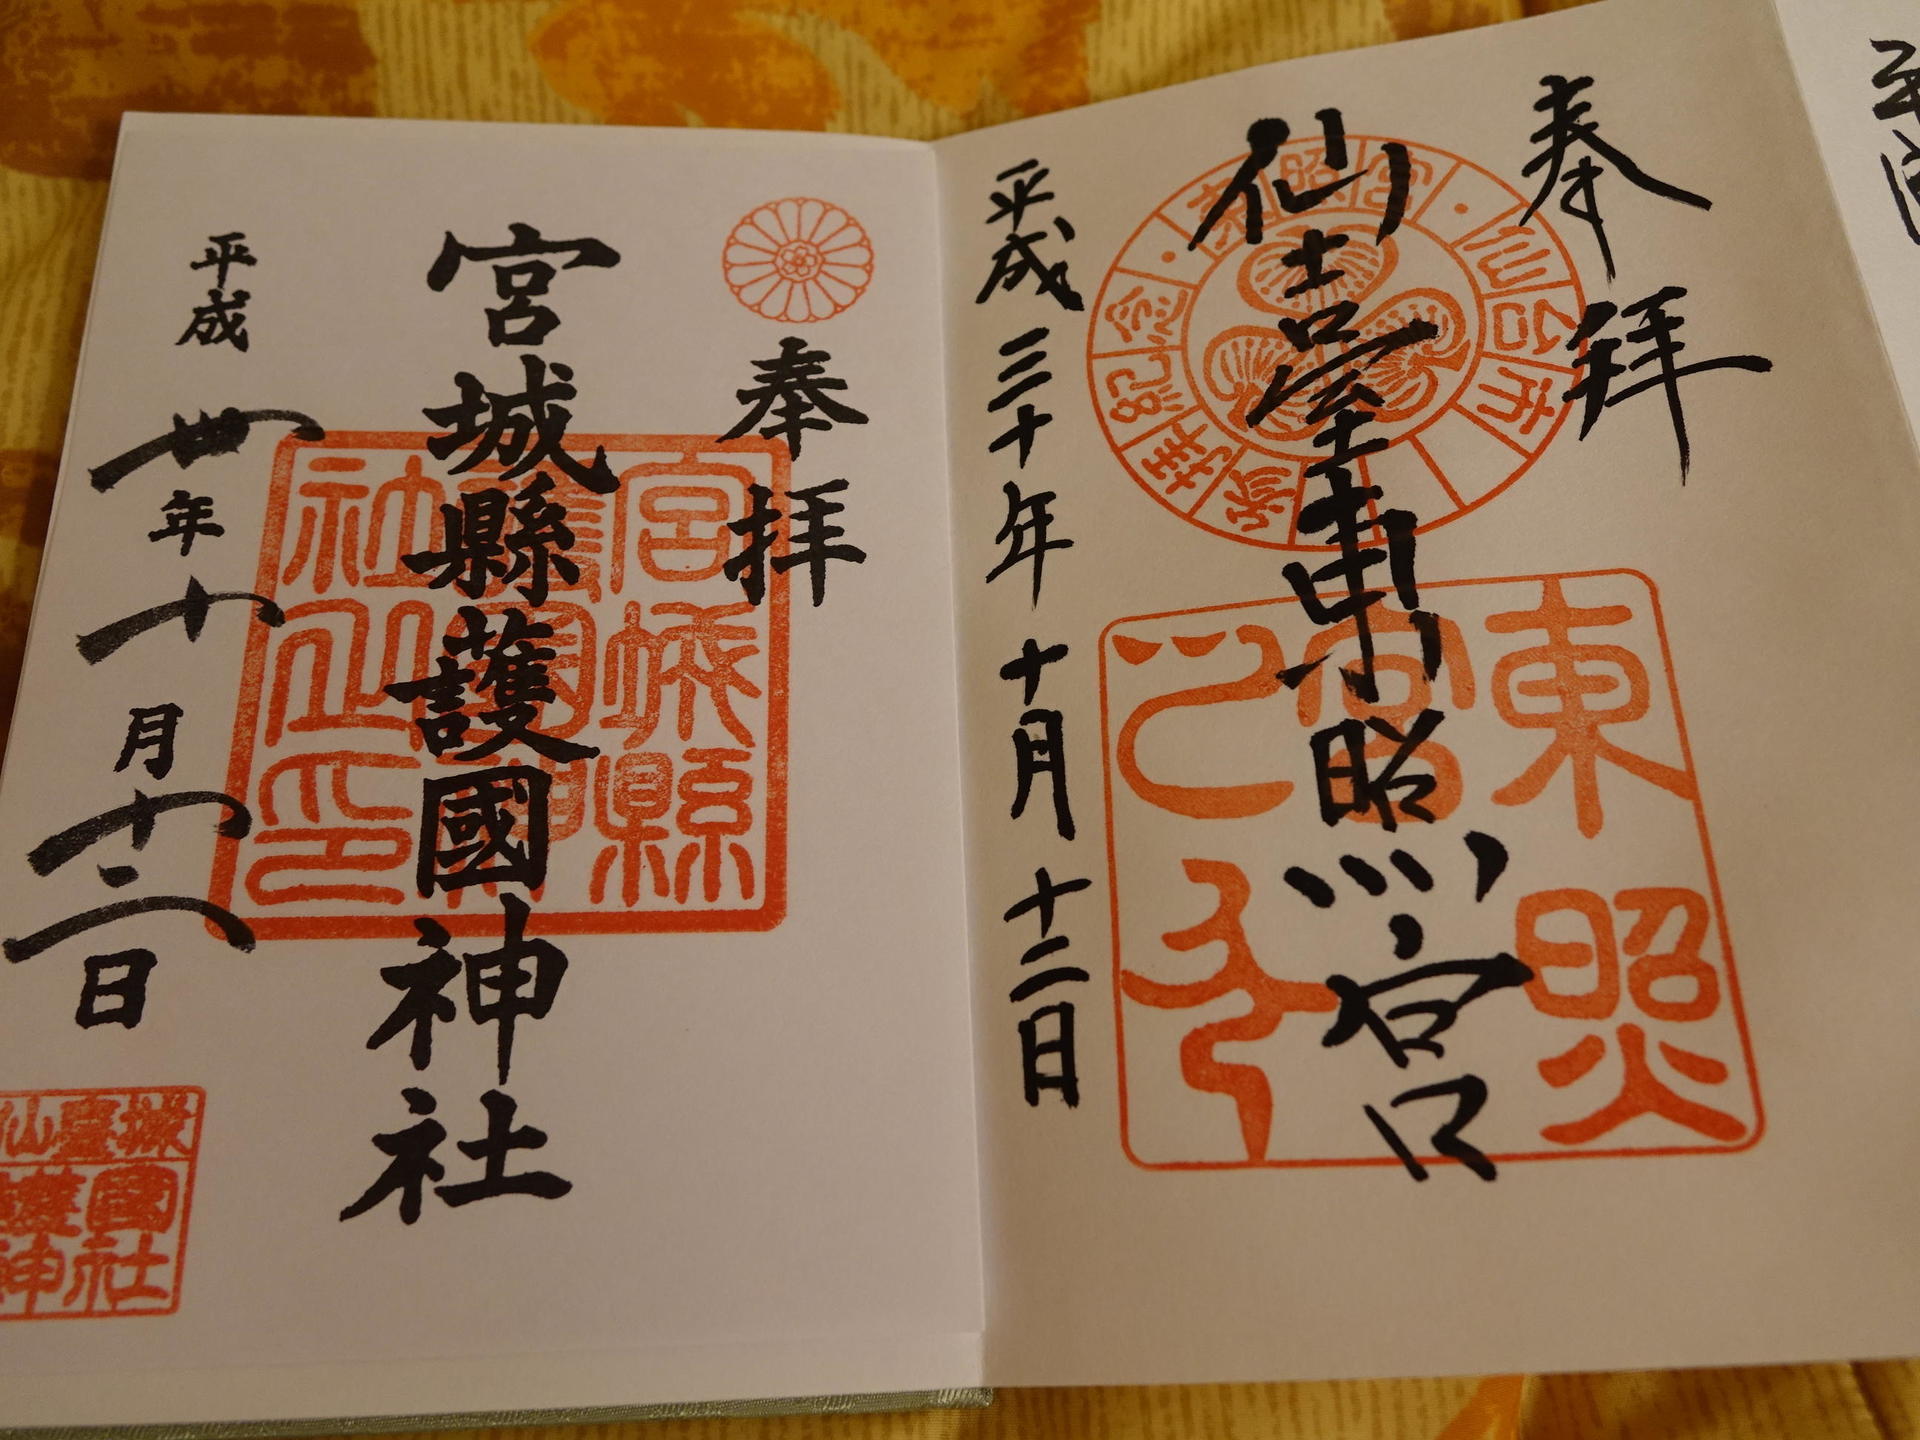 奉拝
仙臺東照宮
平成三十年十月十二日
東照宮
仙台市
東照宮
参拝記念
奉拝
宮城縣護國神社
平成卅年十月十二日
宮城縣
護國神
社之印
仙臺城
護國神社